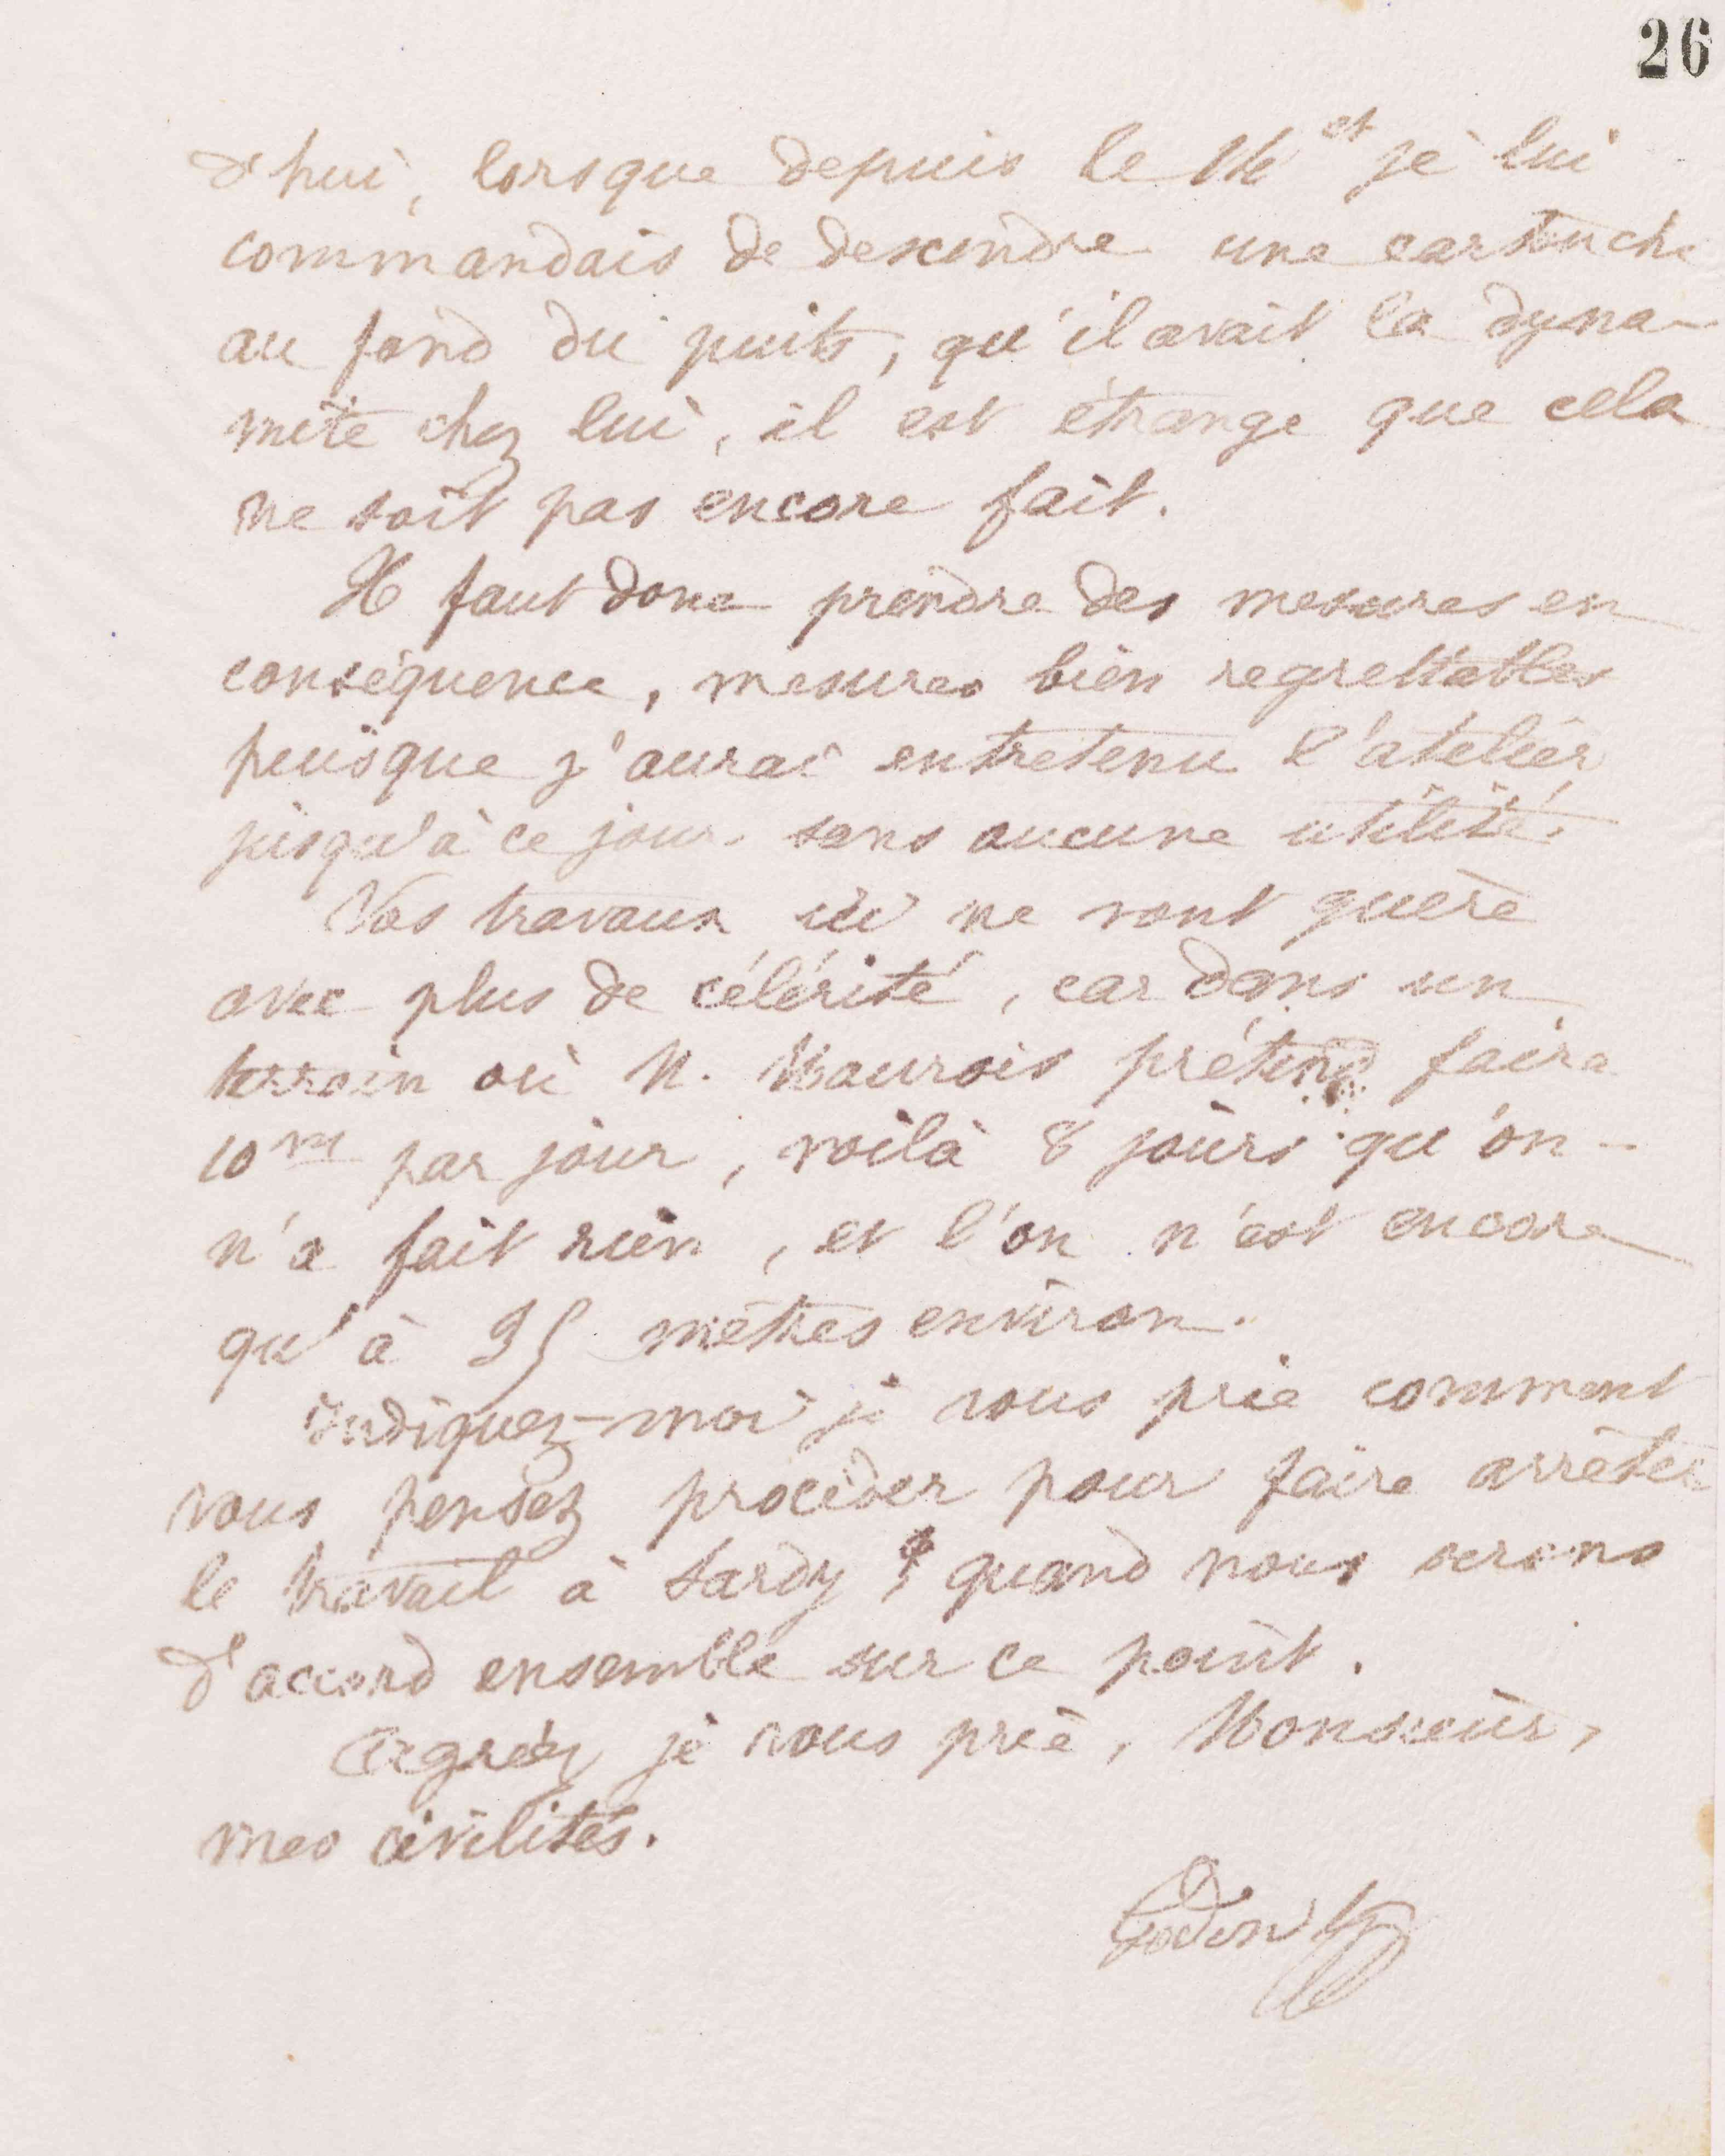 26
d'hui, lorsque depuis le 14 ct je lui
commandais de descendre une cartouche
au fond du puits, qu'il avait la dyna-
mite chez lui, il est étrange que cela
ne soit pas encore fait.
Il faut donc prendre des mesures en
conséquence, mesures bien regrettables
puisque j'aurai entretenu l'atelier
jusqu'à ce jour sans aucune utilité.
Vos travaux ici ne vont guère
avec plus de célérité, car dans un
terrain où M. Maurois prétend faire
10 m par jour, voilà 8 jours qu'on
n'a fait rien, et l'on n'est encore
qu'à 35 mètres environ.
Indiquez-moi je vous prie comment
vous pensez procéder pour faire arrêter
le travail à Sardy quand nous serons
d'accord ensemble sur ce point.
Agréez je vous prie, Monsieur,
mes civilités.
Godin